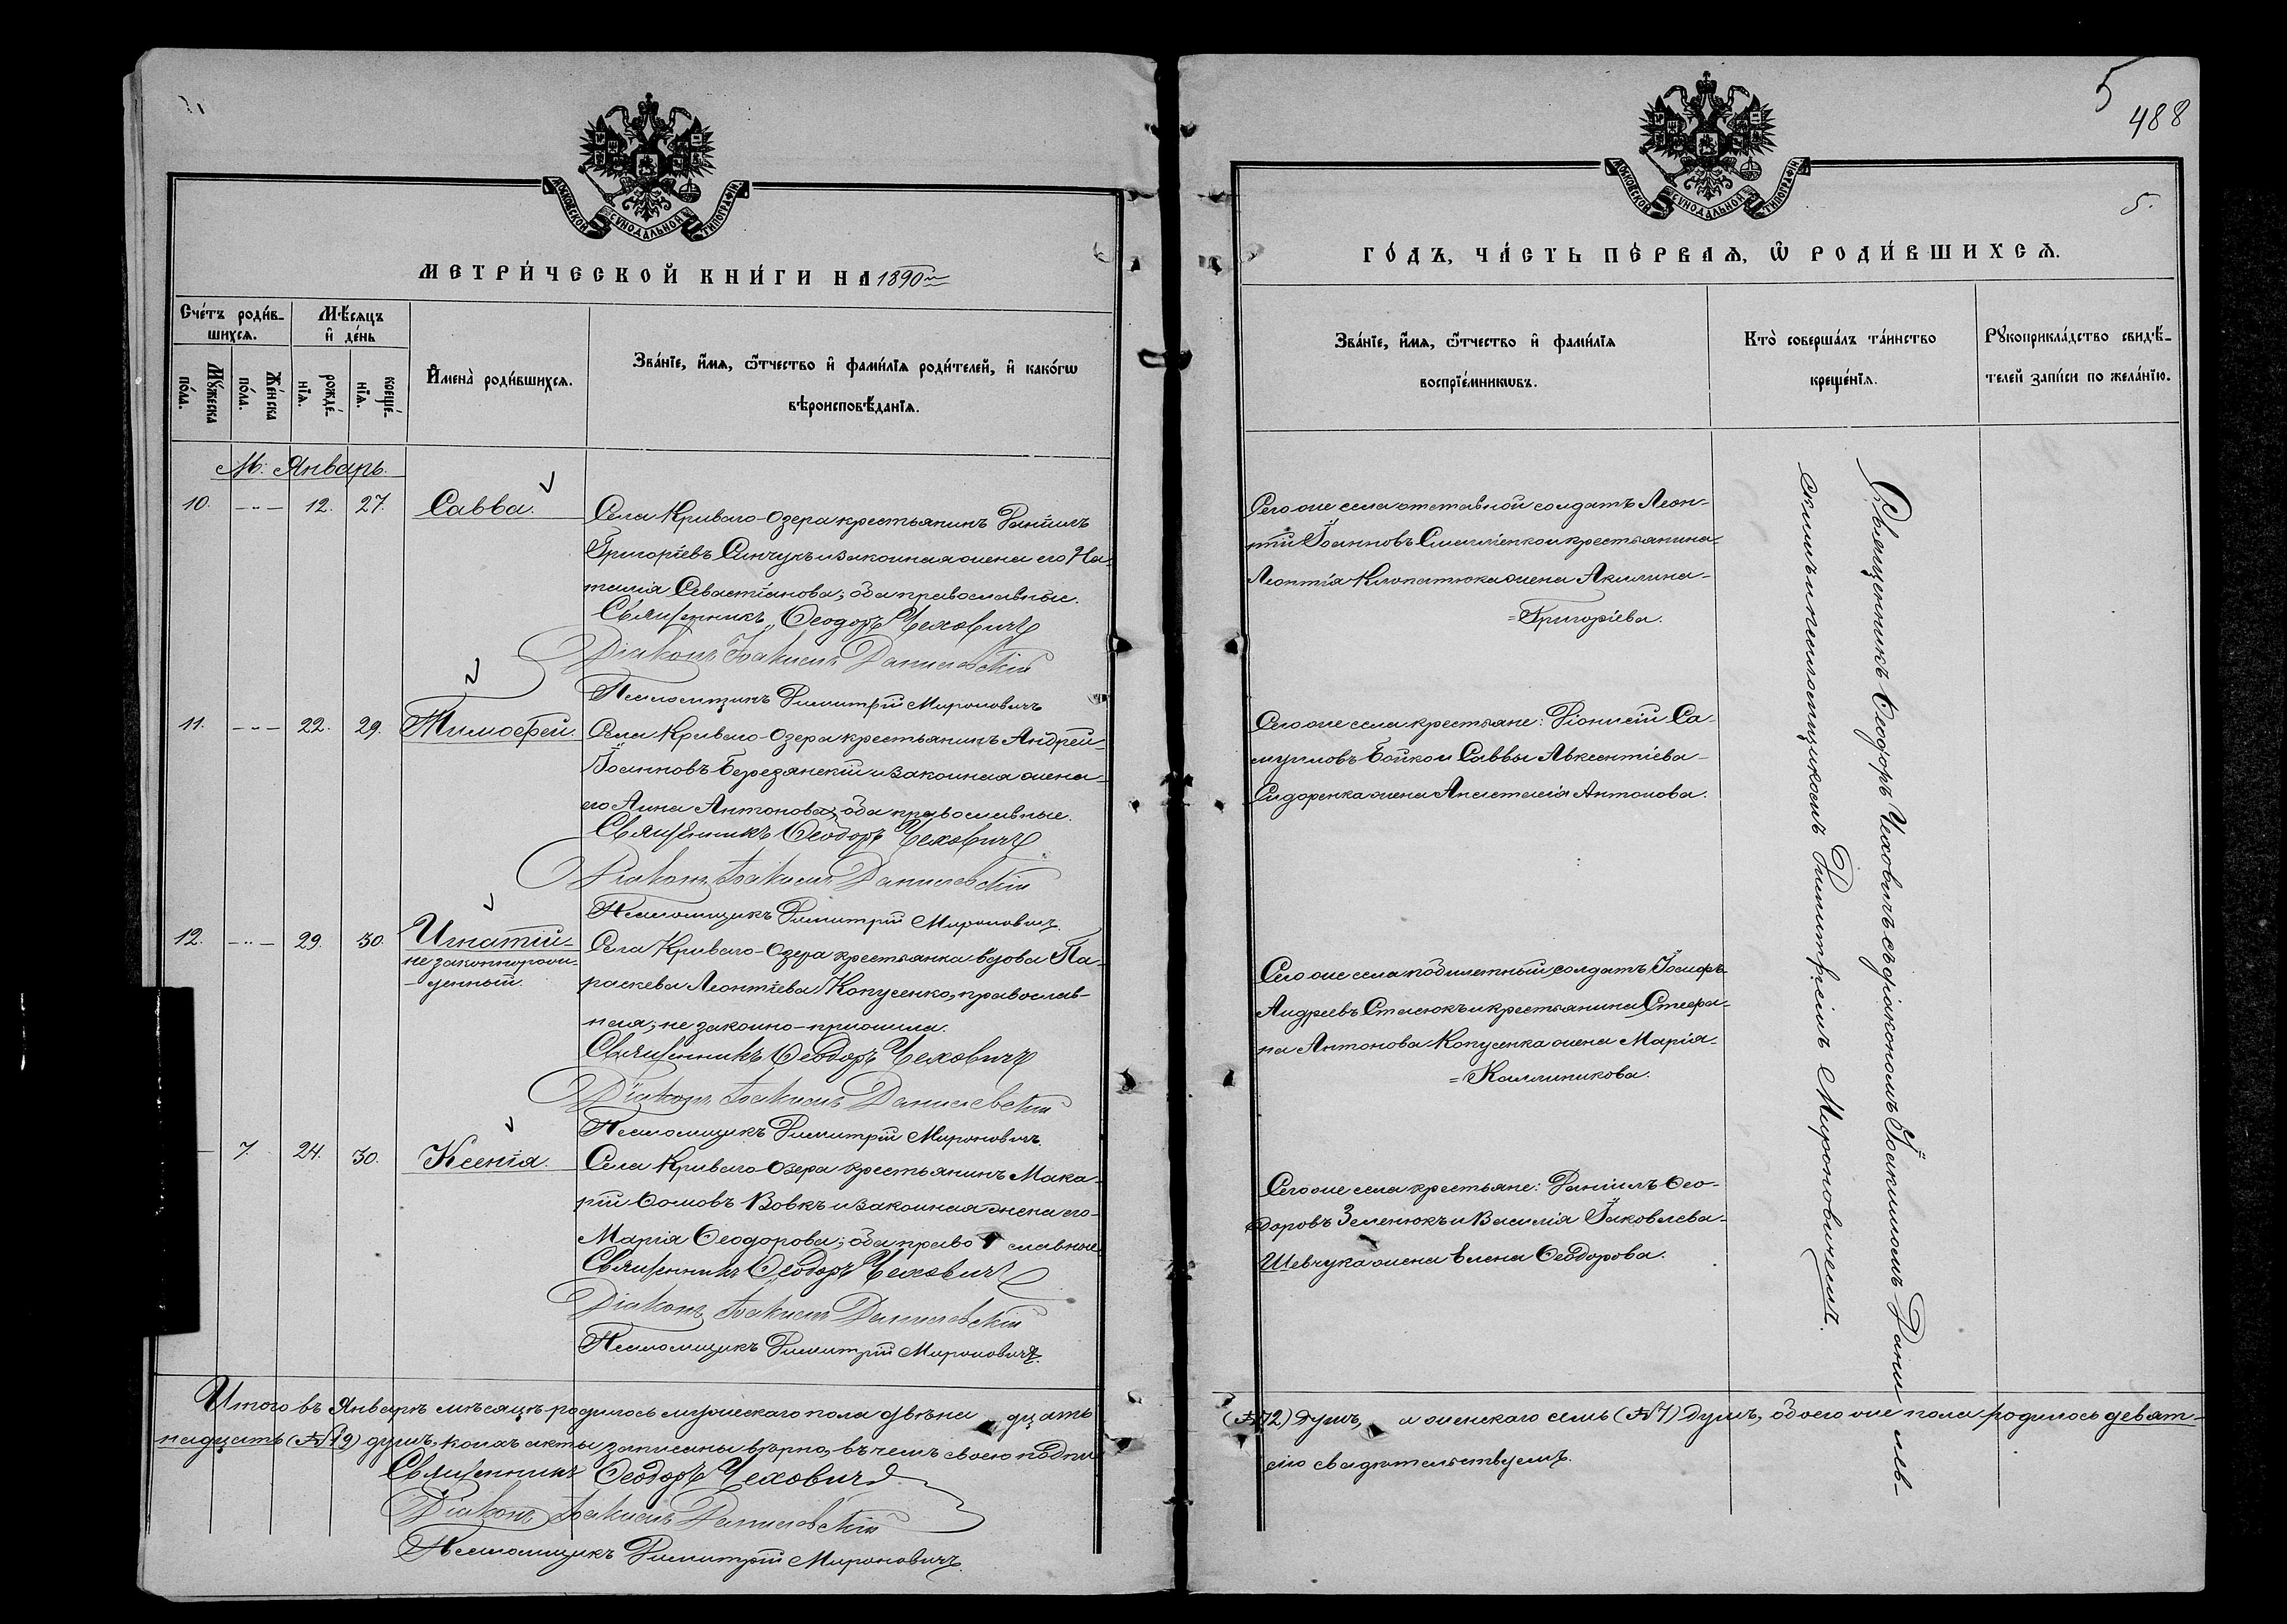 МОСКОВСКОЙ СѴНОДАЛЬНОЙ ТИПОГРАФІИ
МЕТРИ́ЧЕСКОЙ КНИ́ГИ НА 1890й
Сче́тъ роди́в-
шихсѧ.
Мѣ́сѧцъ
и҆ де́нь
Мꙋ́жеска
по́ла.
Же́нска
по́ла.
рожде́-
нїѧ.
креще́-
нїѧ.
И҆мена̀ роди́вшихсѧ.
Зва́нїе, и҆́мѧ, ѻ҆́тчество и҆ фами́лїѧ роди́телей, и҆ како́гѡ
вѣроисповѣ́данїѧ.
М: Январь.
10. -..- 12. 27. Савва.
Села Криваго-Озера крестьянинъ Даніилъ
Григоріевъ Синчукъ и законная жена его На-
талія Севастіанова; оба православные.
Священникъ Ѳеодоръ Чеховичъ
Діаконъ Іоакимъ Данилевскій
Псаломщикъ Димитрій Мироновичъ
11. -..- 22. 29. Тимоѳей.
Села Криваго-Озера крестьянинъ Андрей
Іоанновъ Березянскій и законная жена
его Анна Антонова; оба православные.
Священникъ Ѳеодоръ Чеховичъ
Діаконъ Іоакимъ Данилевскій
Псаломщикъ Димитрій Мироновичъ.
12. -..- 29. 30. Игнатій-
незаконнорож-
денный.
Села Криваго-Озера крестьянка вдова Па-
раскева Леонтіева Копусенко, православ-
ная; незаконно-прижила.
Священникъ Ѳеодоръ Чеховичъ
Діаконъ Іоакимъ Данилевскій
Псаломщикъ Димитрій Мироновичъ
- 7. 24. 30. Ксенія.
Села Криваго-Озера крестьянинъ Мака-
рій Ѳомовъ Вовкъ и законная жена его
Марія Ѳеодорова; оба православные
Священникъ Ѳеодоръ Чеховичъ
Діаконъ Іоакимъ Данилевскій
Псаломщикъ Димитрій Мироновичъ.
Итого въ Январѣ мѣсяцѣ родилось мужескаго пола двѣнадцать
надцать (№19) душъ, коихъ акты записаны вѣрно, въ чемъ своею подпи
Священникъ Ѳеодоръ Чеховичъ
Діаконъ Іоакимъ Данилевскій
Псаломщикъ Димитрій Мироновичъ.
5
488
5.
МОСКОВСКОЙ СѴНОДАЛЬНОЙ ТИПОГРАФІИ
ГО́ДЪ, ЧА́СТЬ ПЕ́РВАѦ, Ѡ҆ РОДИ́ВШИХСѦ.
Зва́нїе, и҆́мѧ, ѻ҆́тчество и҆ фами́лїѧ
воспрїе́мникѡвъ.
Кто̀ соверша́лъ та́инство
креще́нїѧ.
Рꙋкоприкла́дство свидѣ́-
телей за́писи по жела́нїю.
Сего же села отставной солдатъ Леон-
тій Іоанновъ и крестьянина
Леонтія Клопатюка жена Акилина
=Григоріева.
Сего же села крестьяне: Діонисій Са-
муиловъ Бойко и Саввы Авксентіева
Сидоренка жена Анастасія Антонова.
Сего же села побилетный солдатъ Іосифъ
Андреевъ Стасюкъ и крестьянина Стефа-
на Антонова Копусенка жена Марія
=Каллиникова.
Сего же села крестьяне: Даніилъ Ѳео-
доровъ Земенюкъ и Василія Іаковлева
Шевчука жена Елена Ѳеодорова.
Священникъ Ѳеодоръ Чеховичъ съ діакономъ Іоакимомъ Данилев-
скимъ и псаломщикомъ Димитріемъ Мироновичемъ.
(№12) душъ, а женскаго семь (№7) душъ, обоего же пола родилось девят-
сію свидѣтельствуемъ.